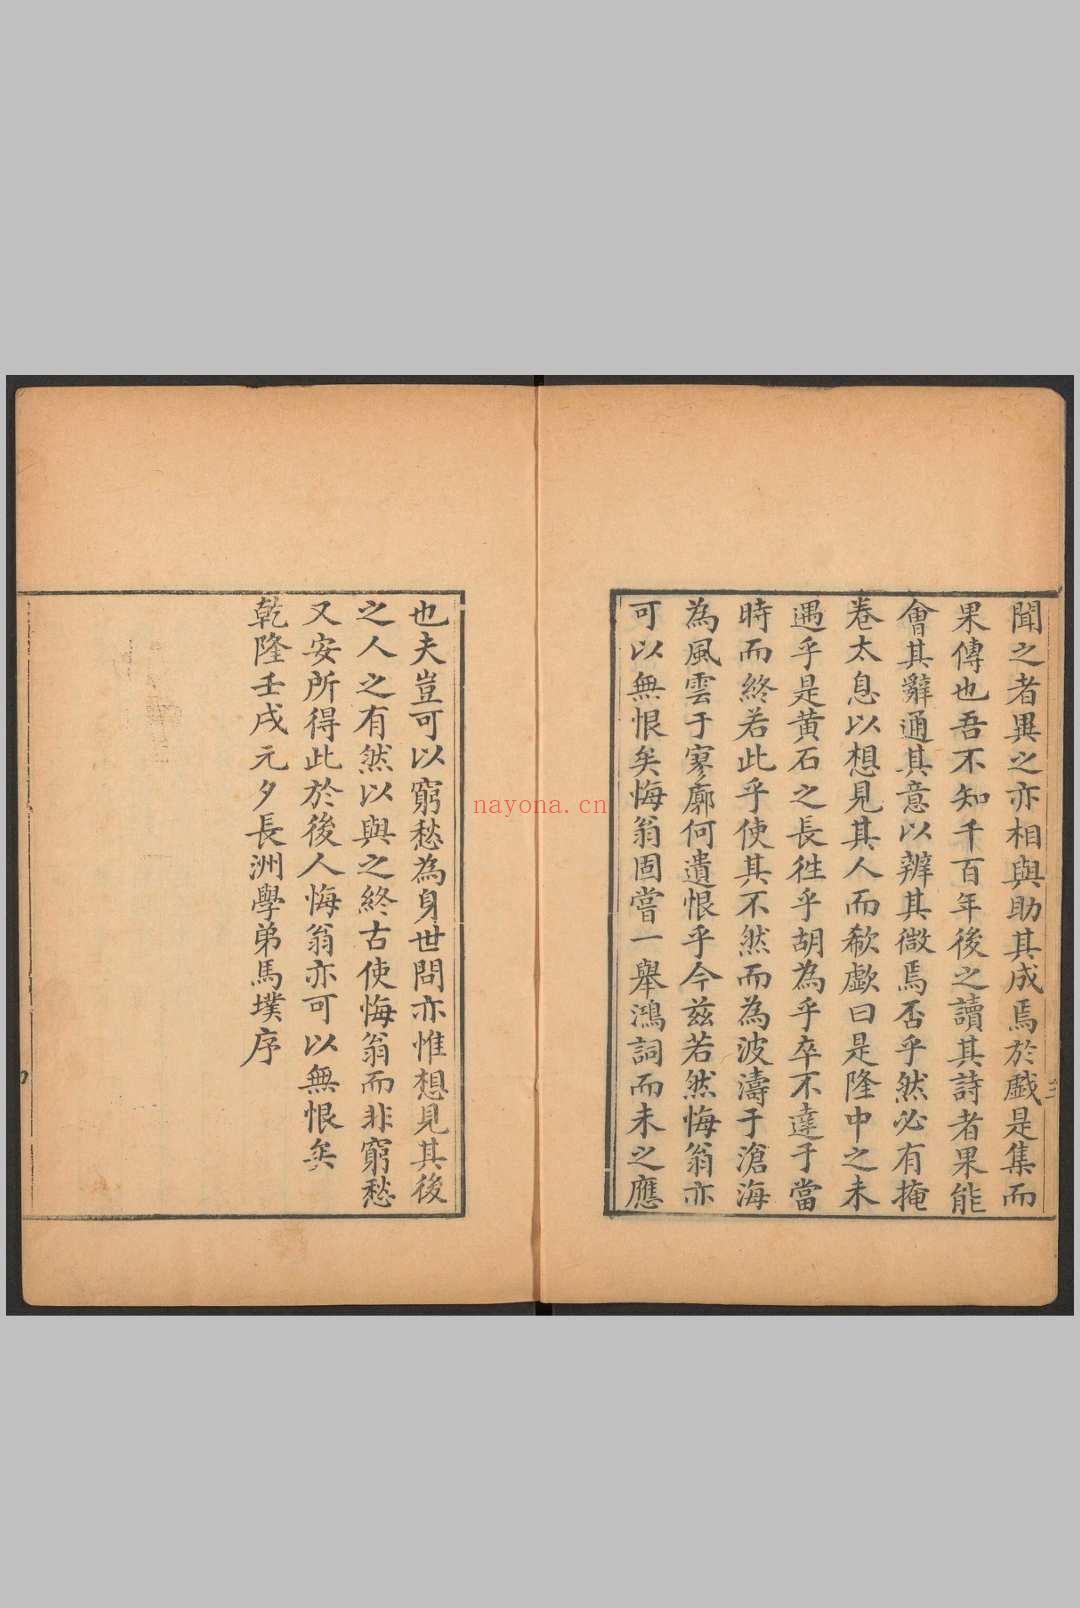 聞之者異之亦相與助其成焉於戲是集而
果傳也吾不知千百年後之讀其詩者果能
會其辭通其意以辨其微焉否乎然必有掩
卷太息以想見其人而欷歔曰是隆中之未
遇乎是黄石之長徃乎胡為乎卒不達于當
時而終若此乎使其不然而為波濤于滄海
為風雲于寥廓何遺恨乎今兹若然悔翁亦
可以無恨矣悔翁固嘗一舉鴻詞而未之應
也夫豈可以窮愁為身世問亦惟想見其後
之人之有然以與之終古使悔翁而非窮愁
又安所得此於後人悔翁亦可以無恨矣
乾隆壬戌元夕長洲學弟馬墣序
三
nayona.cn